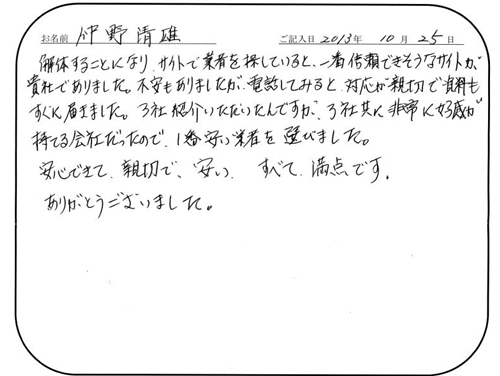 お名前 仲野清雄 ご記入日 2013年 10月 25日
解体することになり、サイトで業者を探していると、一番信頼できそうなサイトが、
貴社でありました。不安もありましたが、電話してみると、対応が親切で資料も
すぐに届きました。3社紹介いただいたんですが、3社共に非常に好感が
持てる会社だったので、1番安い業者を選びました。
安心できて、親切で、安い、すべて、満点です。
ありがとうございました。